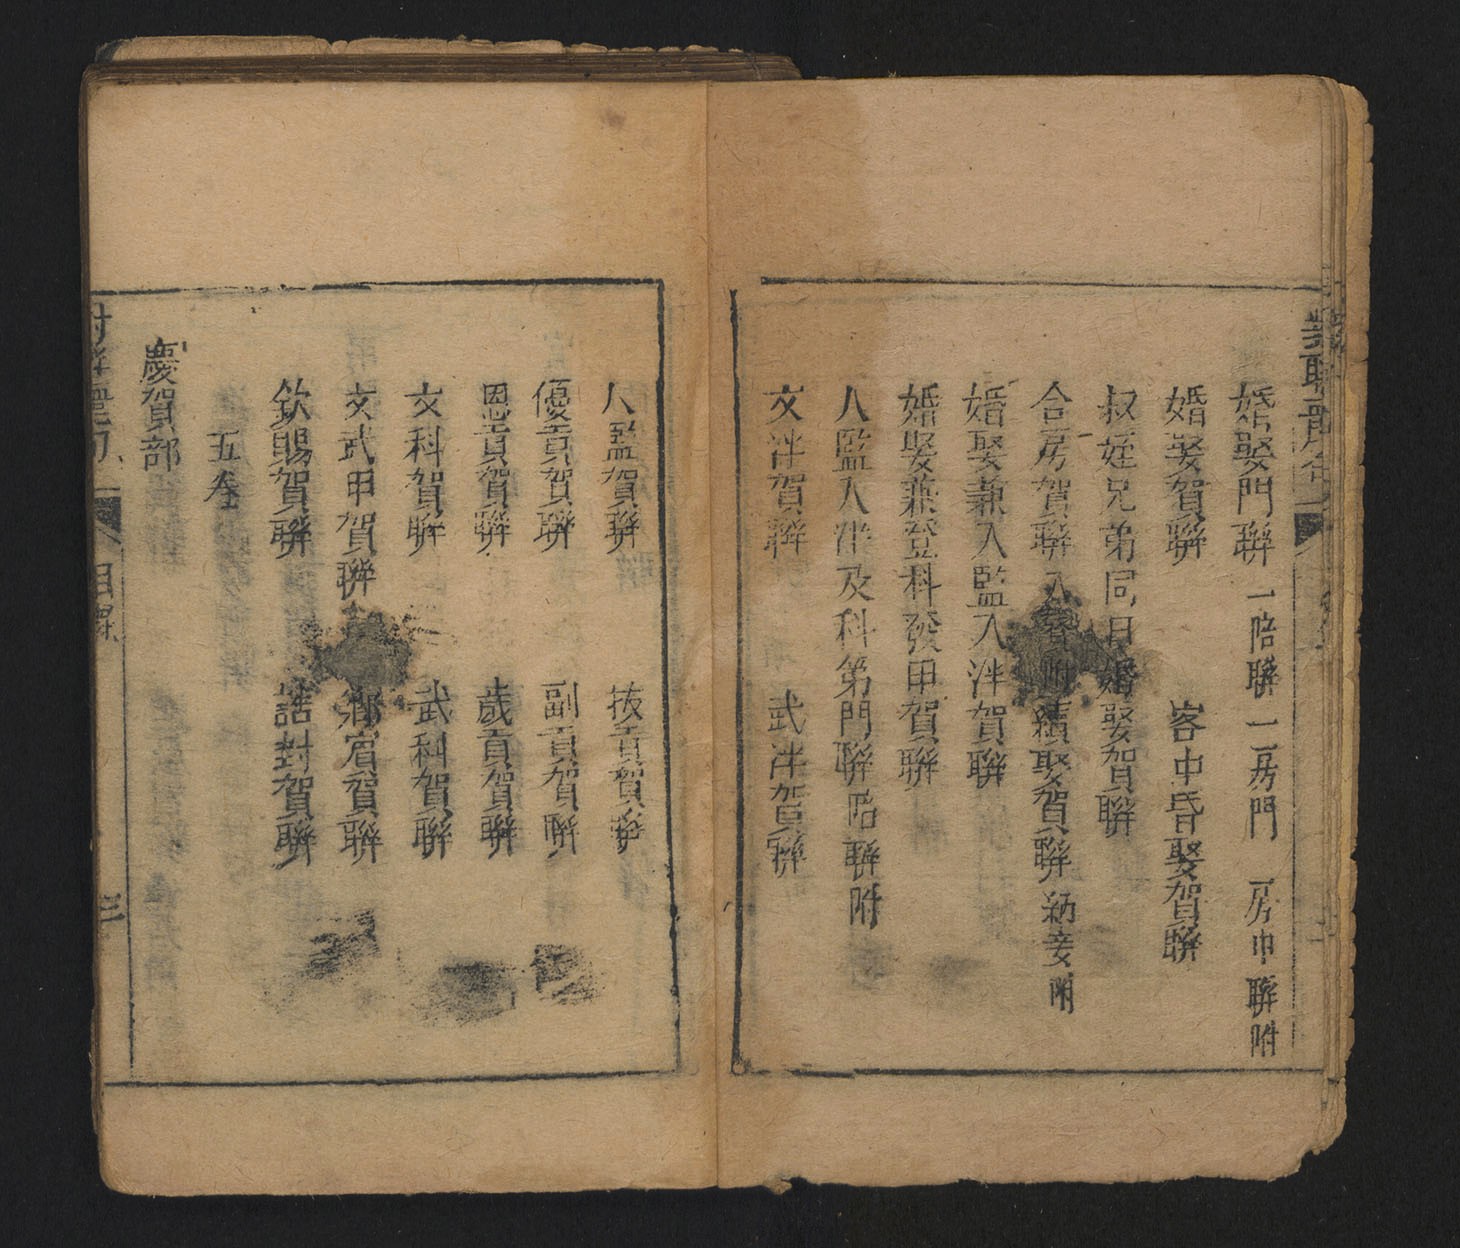 婚娶門聯 一陪聯 一房門 一房中聯附
婚娶賀聯 客中昏娶賀聯
叔姪兄弟同日婚娶賀聯
合房賀聯 入贅附 續娶賀聯 納妾附
婚娶兼入監入泮賀聯
婚娶兼登科發甲賀聯
入監入泮及科第門聯 陪聯附
文泮賀聯 武泮賀聯
入監賀聯 拔貢賀聯
優貢賀聯 副貢賀聯
恩貢賀聯 歲貢賀聯
文科賀聯 武科賀聯
文武甲賀聯 鄉賓賀聯
欽賜賀聯 誥封賀聯
五卷
慶賀部
目錄 三